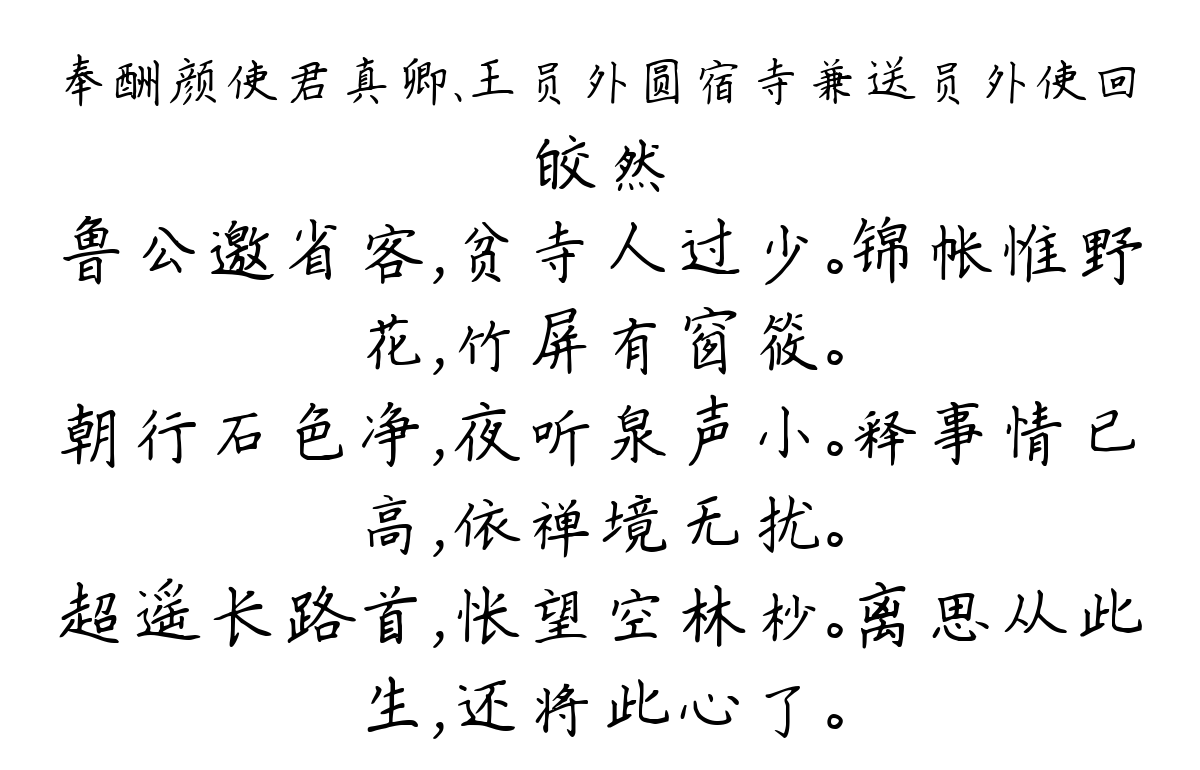 奉酬颜使君真卿、王员外圆宿寺兼送员外使回
皎然
鲁公邀省客,贫寺人过少。锦帐惟野
花,竹屏有窗筱。
朝行石色净,夜听泉声小。释事情已
高,依禅境无扰。
超遥长路首,怅望空林杪。离思从此
生,还将此心了。